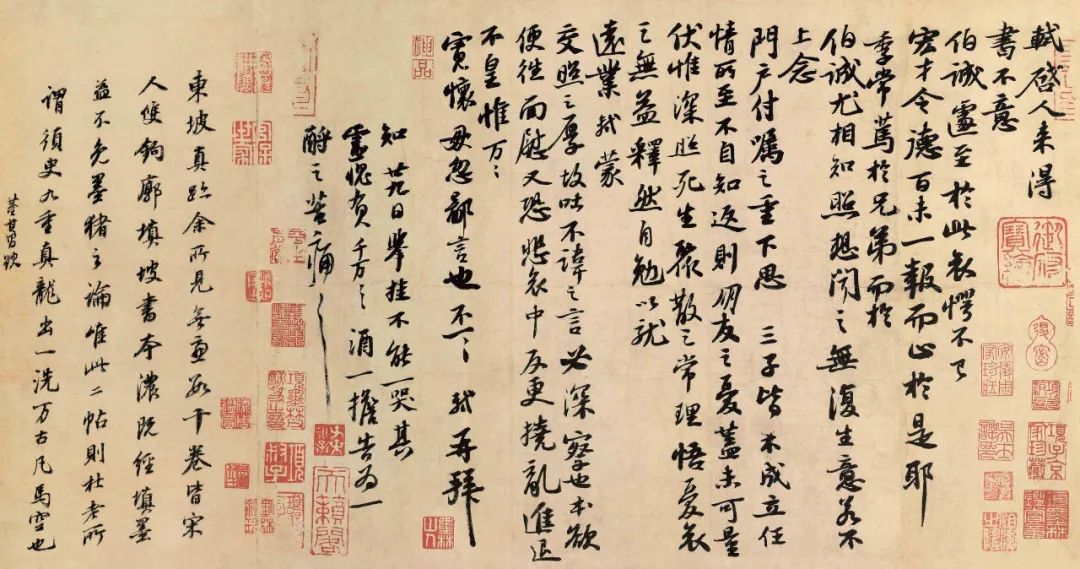 軾啓人來得
書不意
伯誠遽至於此哀愕不已
宏才令德百未一報而止於是耶
季常篤於兄弟而於
伯誠尤相知照想聞之無復生意若不
上念
門户付囑之重下思 三子皆未成立任
情所至不自知返則朋友之憂蓋未可量
伏惟深照死生聚散之常理悟憂哀
之無益釋然自勉以就
遠業軾蒙
交照之厚故吐不諱之言必深察也本欲
便往面慰又恐悲哀中反更撓亂進退
不皇惟万〻
寬懷毋忽鄙言也不一〻 軾再拜
知廿九日舉挂不能一哭其
靈愧負千万〻酒一擔告為一
酹之苦痛〻
神品
東坡真跡余所見無慮數十卷皆宋
人雙鉤廓填坡書本濃既經填墨
益不免墨猪之論唯此二帖則杜老所
謂須臾九重真龍出一洗万古凡馬空也
董其昌題